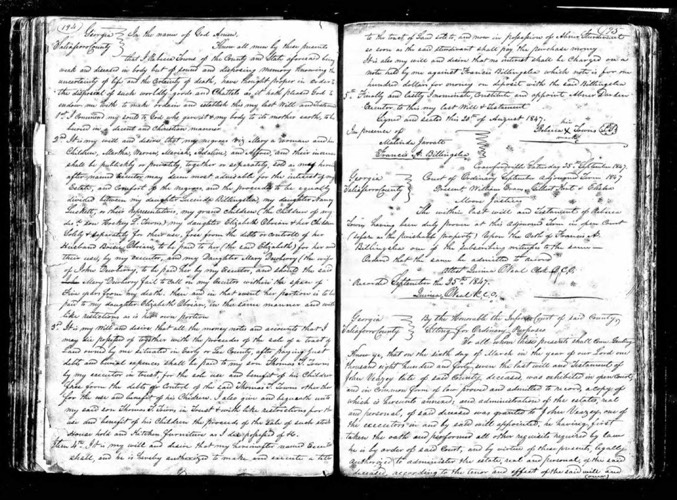 194
Georgia In the name of God Amen.
Taliaferro County Know all men by these presents
that I Towns of the County and State aforesaid being
weak and decrepid in body but of sound and disposing memory knowing the
uncertainty of life and the certainty of death, have thought proper in order to
the disposal of such worldly goods and Chattels as it hath pleased God to
endow me with to make ordain and establish this my last Will and Testament
1st I commend my soul to God who gave it & my body to its mother earth, to be
buried in a decent and Christian manner.
2nd It is my will and desire that my negroes viz Mary a woman and her
Children, and their increase
shall be publickly or privately together or separately, sold as my herein
after named Executor may deem most advisable for the interest of my
Estate, and of the negroes, and the proceeds to be equally
divided between my daughter Billingslea, my daughter Nancy
or their representatives, my grand Children (the Children of my
son Thos. T. Towns) my daughter Elizabeth & her Children
Solely & separately for their use, free from the debts or controll of her
Husband to be paid to her (the said Elizabeth) for her and
their use by my executor, and my Daughter Mary (the wife
of John to be paid her by my Executor, and should the said
John Mary fail to call on my Executor within the space of
five years from my death, then and in that event her portion is to be
paid to my daughter Elizabeth in the same manner and with
like restrictions as is her own portion
3d It is my will and desire that all the money notes and accounts that I
may die possessed of together with the proceeds of the sale of a tract of
Land owned by me situated in Early or Lee County, after paying just
debts and funeral expences shall be paid to my son Thomas T. Towns
by my executor in trust for the sole use and benefit of his Children
free from the debts or control of the said Thomas T. Towns other than
for the use and benefit of his Children. I also give and bequeath unto
my said son Thomas T. Towns in Trust & with like restrictions for the
use and benefit of his Children the proceeds of the Sale of such
house hold and Kitchen furniture as I die possessed of &c.
Item 4th It is my will and desire that my herein named Executor
shall, and he is hereby authorized to make and execute a title
195
to the tract of Land sold to, and now in possession of Abner Sturdivant
so soon as the said Sturdivant shall pay the purchase money
It is also my will and desire that no interest shall be charged on a
note held by me against Francis Billingslea which note is for one
hundred dollars for money on deposit with the said Billingslea
5th Finally and lastly I nominate, constitute and appoint Abner
Executor to this my last Will & testament
Signed and sealed this 20th of August 1847.
In presence of
her
X Towns
mark
Malinda Jarrett
Francis A. Billingslea
Crawfordville Saturday 25 September 1847.
Georgia Court of Ordinary September adjourned Term 1847
Taliaferro County Present
The within last will and testament of
Towns having been duly proven at this adjourned term in open Court
(before a the presiding present) Upon the Oath of Francis A.
Billingslea one of the subscribing witnesses to the same
Ordered that the same be admitted to record
Attest Quinea O'Neal Clk C.O.
Recorded September the 25th 1847.
Quinea O'Neal C.C.O.
Georgia By the Honorable the Inferior Court of said County,
Taliaferro County Sitting for Ordinary Purposes
To all whom these presents shall come Greeting
Know ye, that on the sixth day of March in the year of our Lord one
thousand eight hundred and forty seven the last will and Testament of
John Veazey late of said County, deceased was exhibited in open court,
and in common form of law proved and admitted to record, a copy of
which is hereunto annexed; and administration of the estate, real
and personal, of said deceased was granted to John Veazey, one of
the executors in and by said will appointed, he having first
taken the oath and performed all other requisits required by law
he is by order of said Court, and by virtue of these presents, legally
authorized to administer the estate, real and personal, of the said
deceased, according to the tenor and effect of the said will and